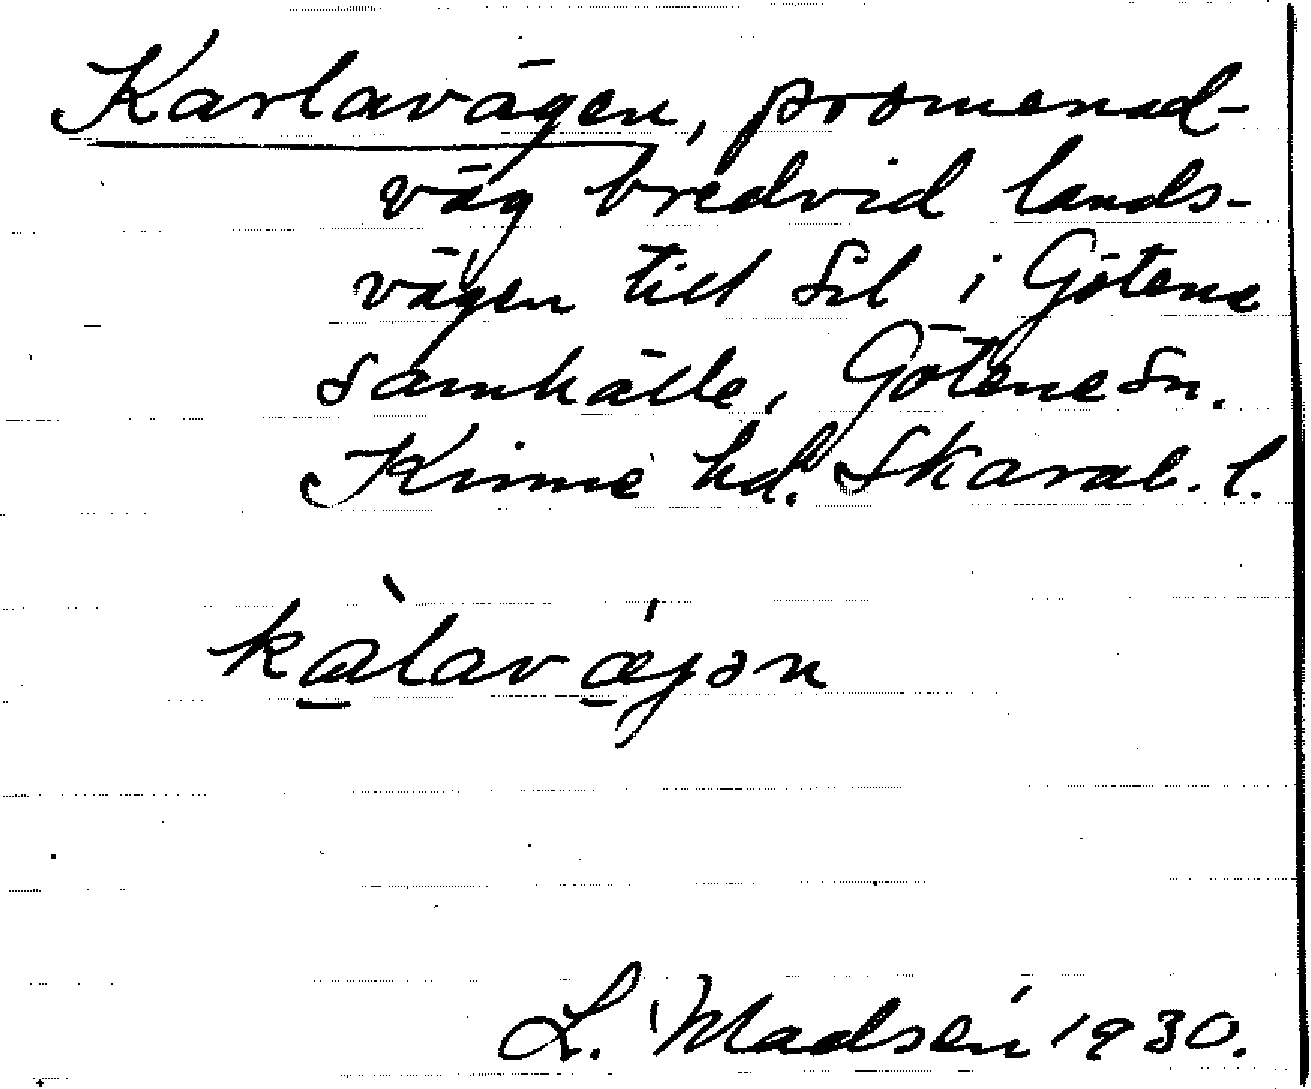 Karlavägen, promenad-
väg bredvid lands-
vägen till Sil i Götene
samhälle, Götene sn.
Kinne hd. Skarab. l.
kàlavǽjən
L. Madsén 1930.